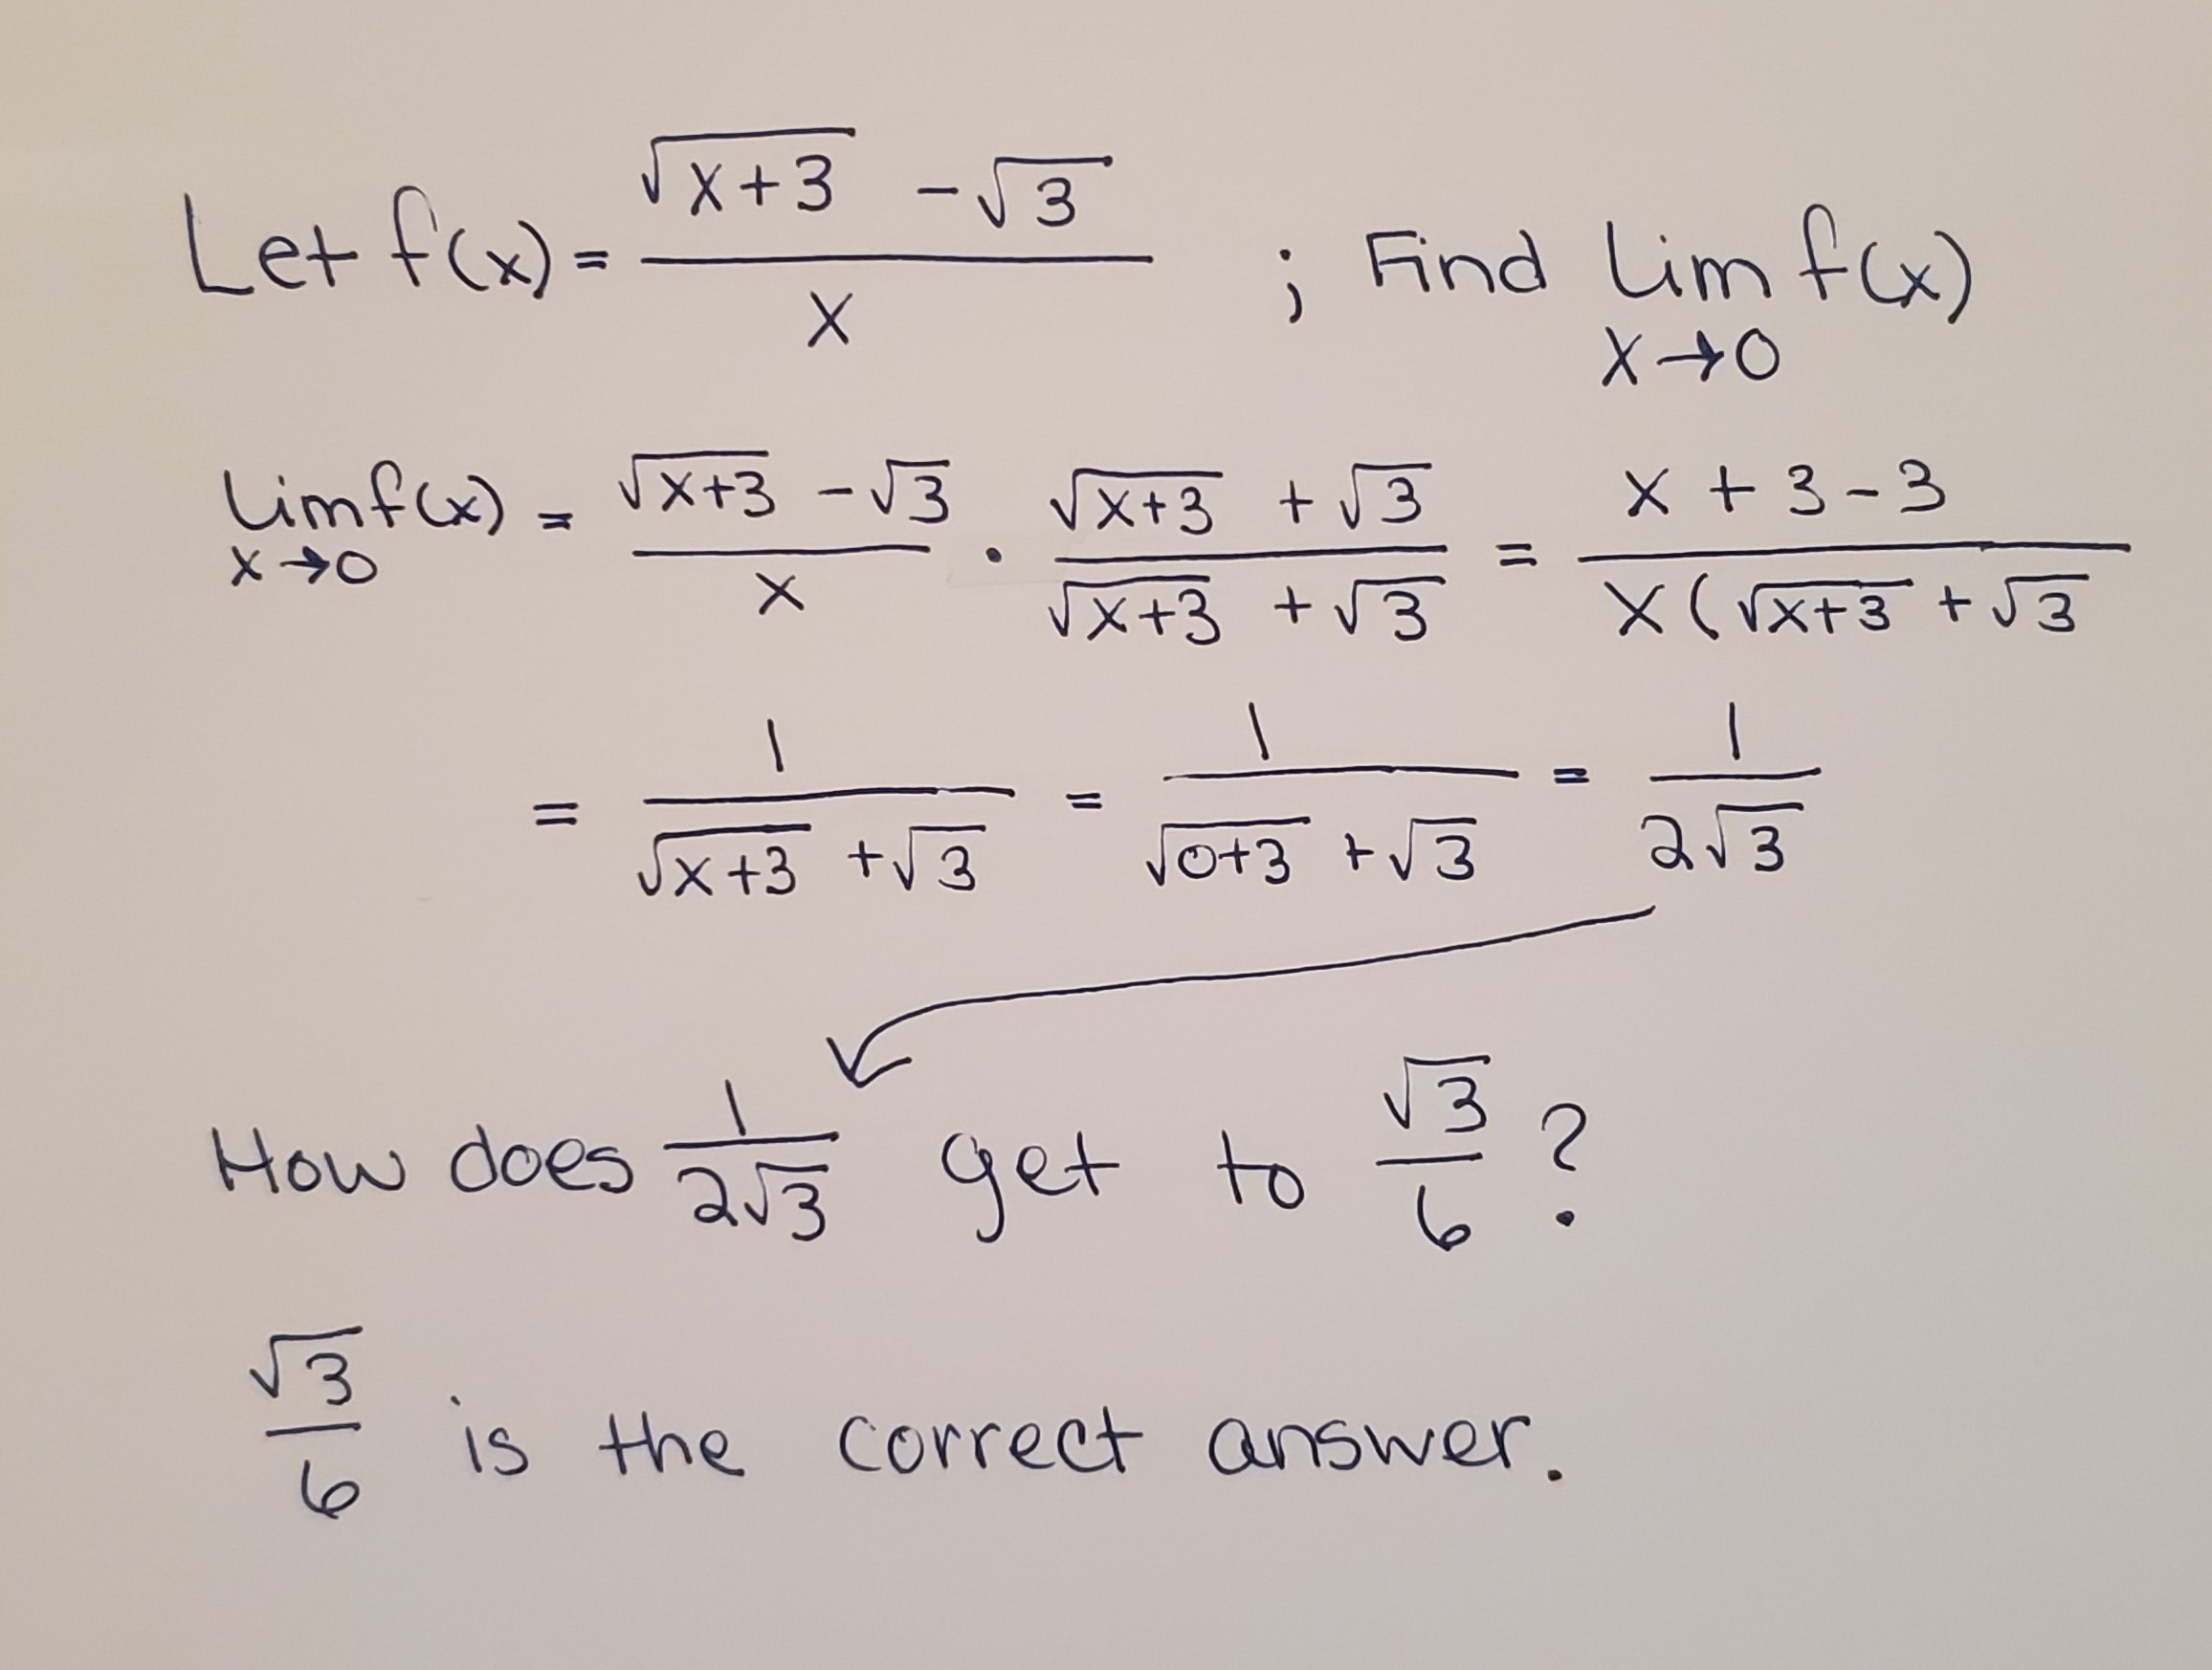 Let f(x) = (√(x+3) - √3) / x ; Find lim f(x)
x→0
lim f(x) = (√(x+3) - √3) / x · (√(x+3) + √3) / (√(x+3) + √3) = (x + 3 - 3) / (x(√(x+3) + √3
x→0
= 1 / (√(x+3) + √3) = 1 / (√(0+3) + √3) = 1 / (2√3)
How does 1 / (2√3) get to √3 / 6 ?
√3 / 6 is the correct answer.